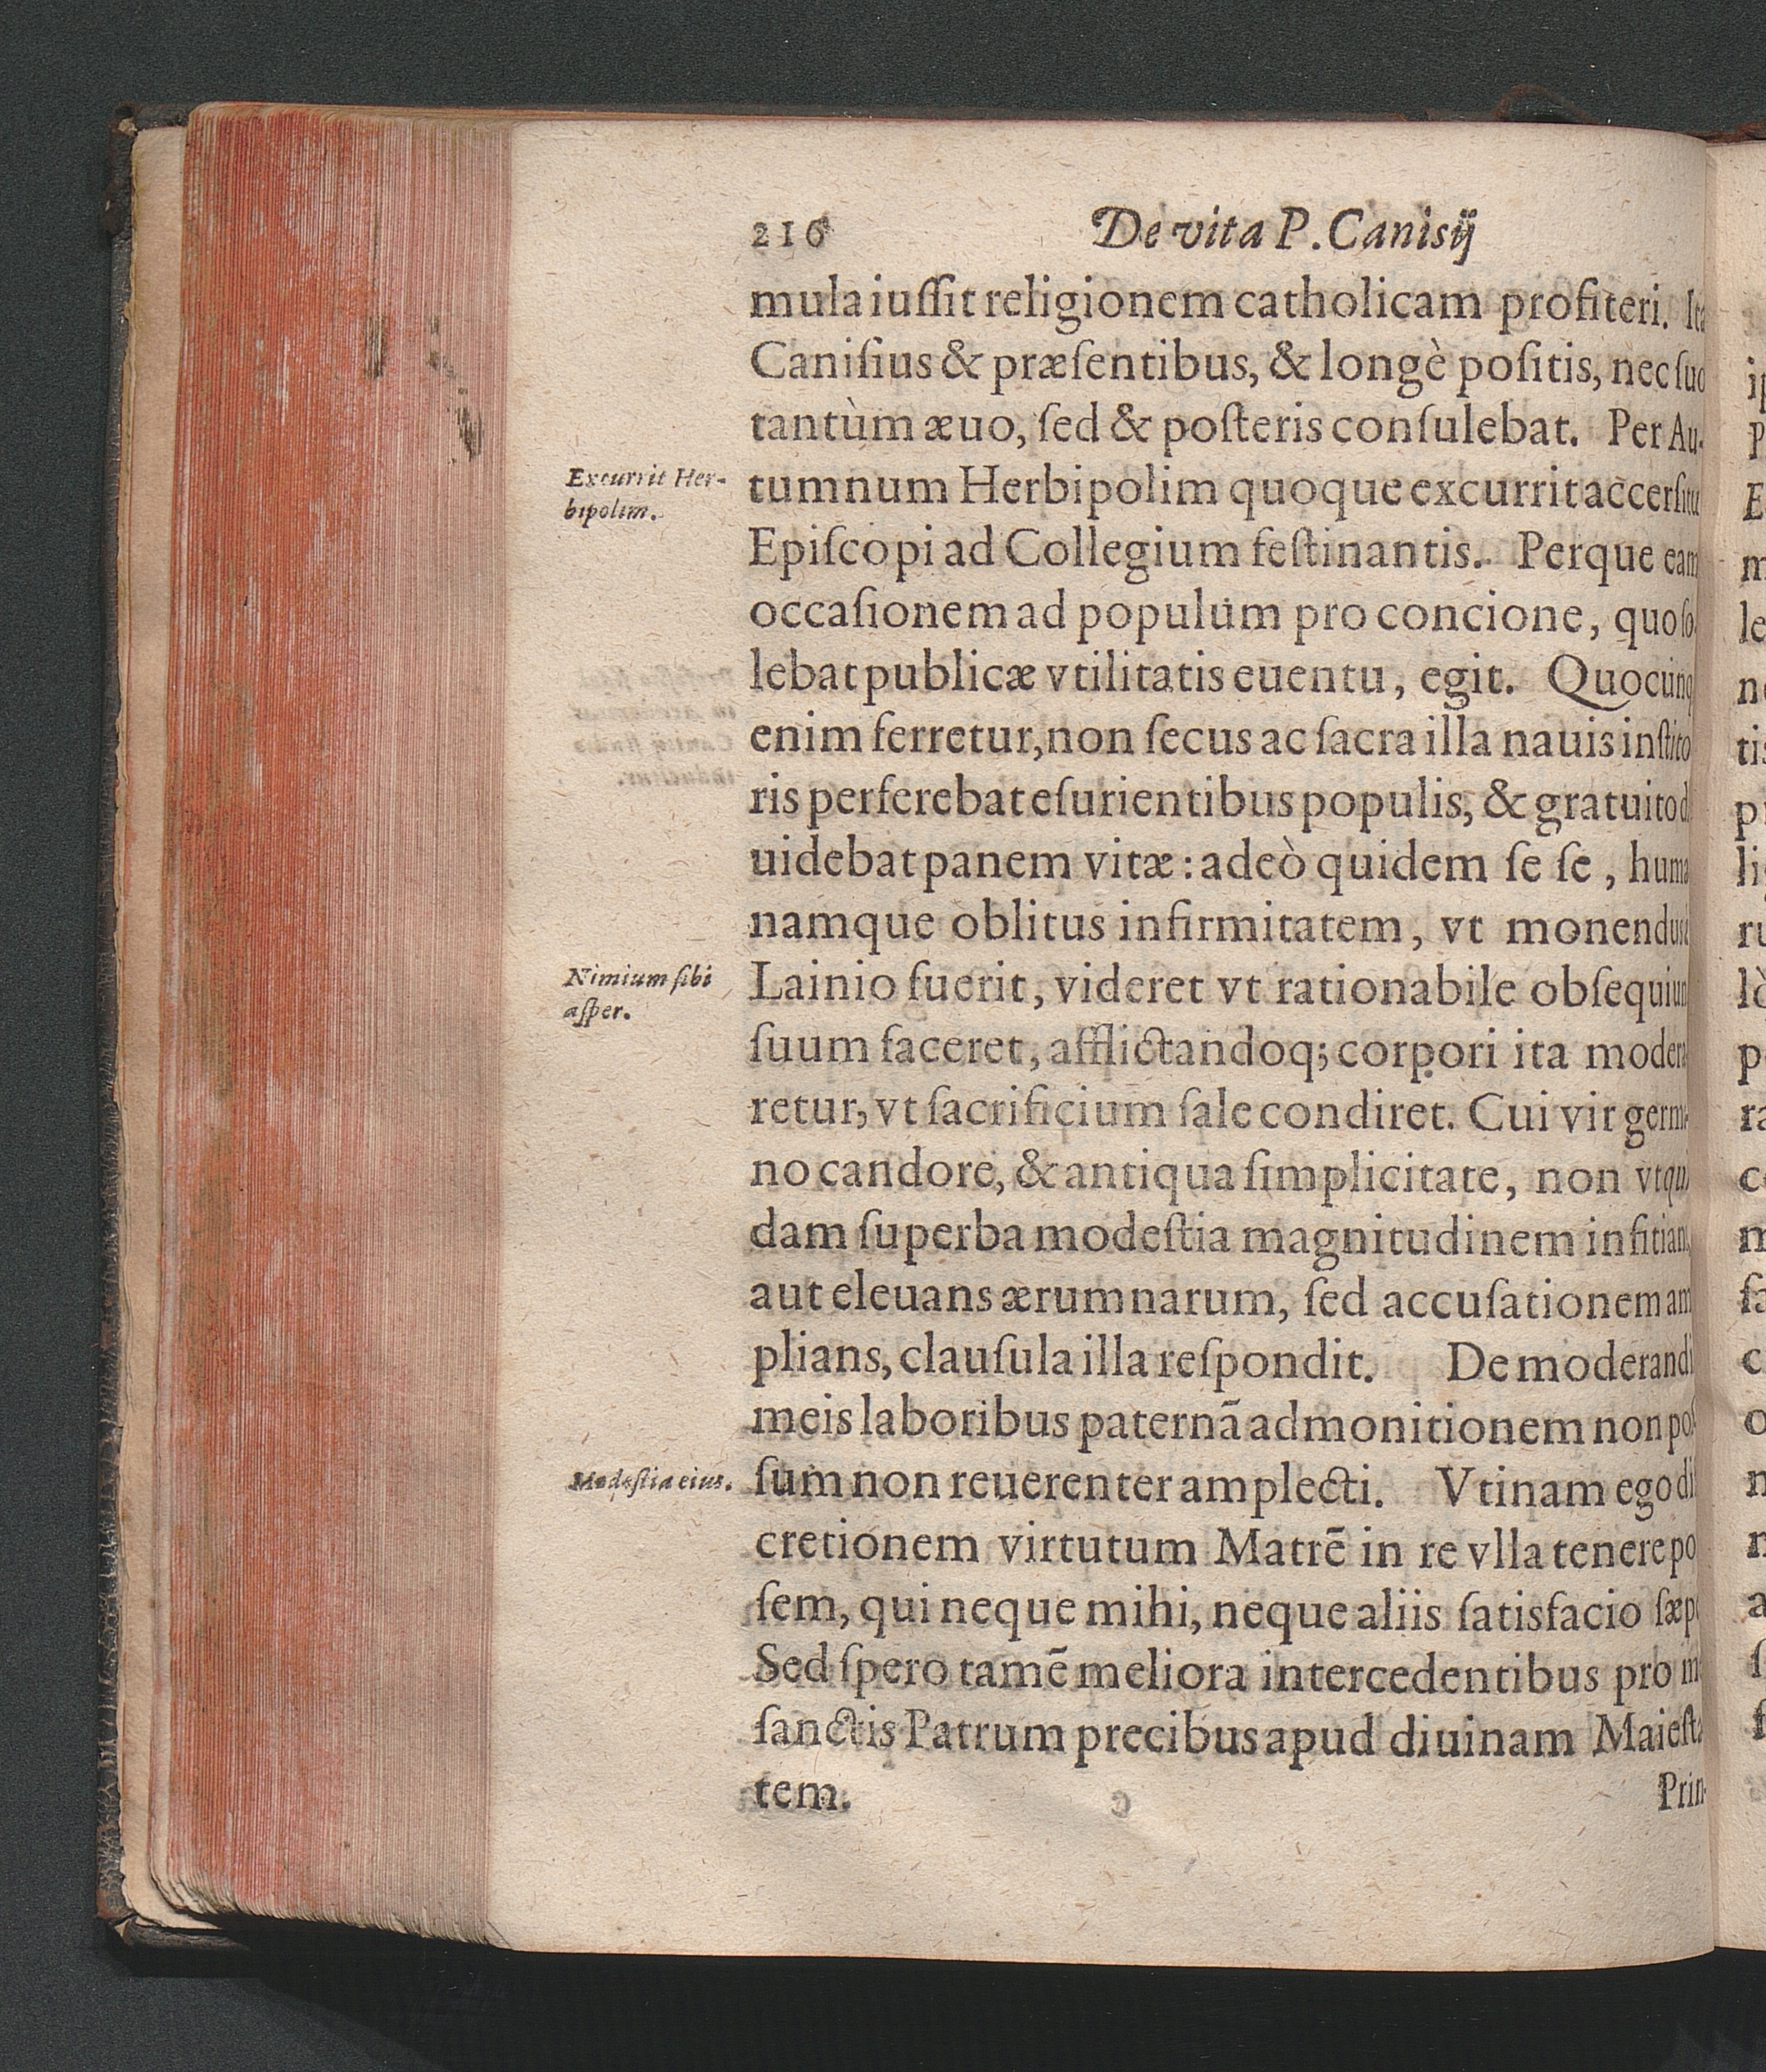 216 De vita P. Canisij
mula iuſſit religionem catholicam profiteri. Ita
Caniſius & præſentibus, & longè poſitis, nec ſuo
tantùm æuo, ſed & poſteris conſulebat. Per Au-
Excurrit Her-
bipolim.
tumnum Herbipolim quoque excurrit accerſitu
Epiſcopi ad Collegium feſtinantis. Perque eam
occaſionem ad populum pro concione, quo ſo-
lebat publicæ vtilitatis euentu, egit. Quocunq
enim ferretur, non ſecus ac ſacra illa nauis inſtito
ris perferebat eſurientibus populis, & gratuito d
uidebat panem vitæ: adeò quidem ſe ſe, huma
namque oblitus infirmitatem, vt monendus
Nimium ſibi
aſper.
Lainio fuerit, videret vt rationabile obſequium
ſuum faceret, afflictandoq; corpori ita modera
retur, vt ſacrificium ſale condiret. Cui vir germa
no candore, & antiqua ſimplicitate, non vt qui
dam ſuperba modeſtia magnitudinem infitians
aut eleuans ærumnarum, ſed accuſationem am
plians, clauſula illa reſpondit. De moderandi
meis laboribus paternā admonitionem non poſ
Modeſtia eius.
ſum non reuerenter amplecti. Vtinam ego diſ
cretionem virtutum Matrē in re vlla tenere poſ
ſem, qui neque mihi, neque aliis ſatisfacio ſæpe
Sed ſpero tamē meliora intercedentibus pro me
ſanctis Patrum precibus apud diuinam Maieſta
tem.
Prin-